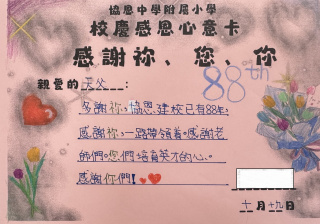 協恩中學附屬小學
校慶感恩心意卡
感謝祢、您、你
88th
親愛的天父:
多謝祢,協恩建校已有88年,
感謝祢,一路帶領著。感謝老
師們。您們培育英才的心。
感謝你們!
十一月十九日